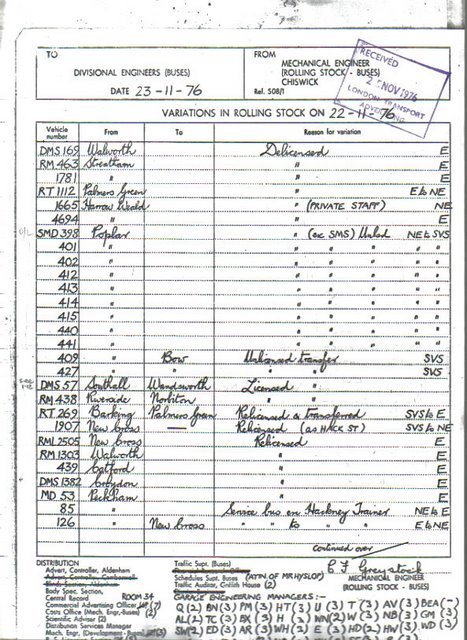 TO
DIVISIONAL ENGINEERS (BUSES)
DATE 23-11-76
FROM
MECHANICAL ENGINEER
(ROLLING STOCK - BUSES)
CHISWICK
Ref. 508/1
RECEIVED
NOV 1976
LONDON TRANSPORT
ADVERTISING
VARIATIONS IN ROLLING STOCK ON 22-11-76
Vehicle number From To Reason for variation
DMS 169 Walworth Delicensed E
RM 463 Streatham " E
1781 " " E
RT 1112 Palmers Green " E to NE
1665 Harrow Weald " (PRIVATE STAFF) NE
4694 " " E
O/L SMD 398 Poplar " (ex SMS) Unlsd NE to SVS
401 " " " " " " "
402 " " " " " " "
412 " " " " " " "
413 " " " " " " "
414 " " " " " " "
415 " " " " " " "
440 " " " " " " "
441 " " " " " " "
409 " Bow Unlicensed transfer SVS
427 " " " " SVS
DMS 57 Southall Wandsworth Licensed " E
RM 438 Riverside Norbiton " " E
RT 269 Barking Palmers Green Relicensed & Transferred SVS to E
1907 New Cross — Relicensed (as HACK ST) SVS to NE
RML 2505 New Cross Relicensed E
RM 1303 Walworth " E
439 Catford " E
DMS 1382 Croydon " E
MD 53 Peckham " E
85 " Service bus ex Hackney Trainer NE to E
126 " New Cross " " to " " E to NE
continued over
DISTRIBUTION
Advert. Controller, Aldenham
Body Spec. Section,
Central Record ROOM 34
Commercial Advertising Officer (7)
Costs Office (Mech. Engr.-Buses) (2)
Scientific Adviser (2)
Distribution Services Manager
Mech. Engr. (Development - Buses)
Traffic Supt. (Buses)
Schedules Supt. Buses (ATTN OF MR HYSLOP)
Traffic Auditor, Griffith House (2)
C F Greystock
MECHANICAL ENGINEER
(ROLLING STOCK - BUSES)
GARAGE ENGINEERING MANAGERS :-
Q (2) BN (3) PM (3) HT (3) U (3) T (3) AV (3) BEA (-)
AL (2) TC (3) BX (3) H (2) W (2) X (3) NB (3) GM (3)
SW (2) ED (3) AR (3) WH (2) E (3) HD (2) HW (3) WD (3)